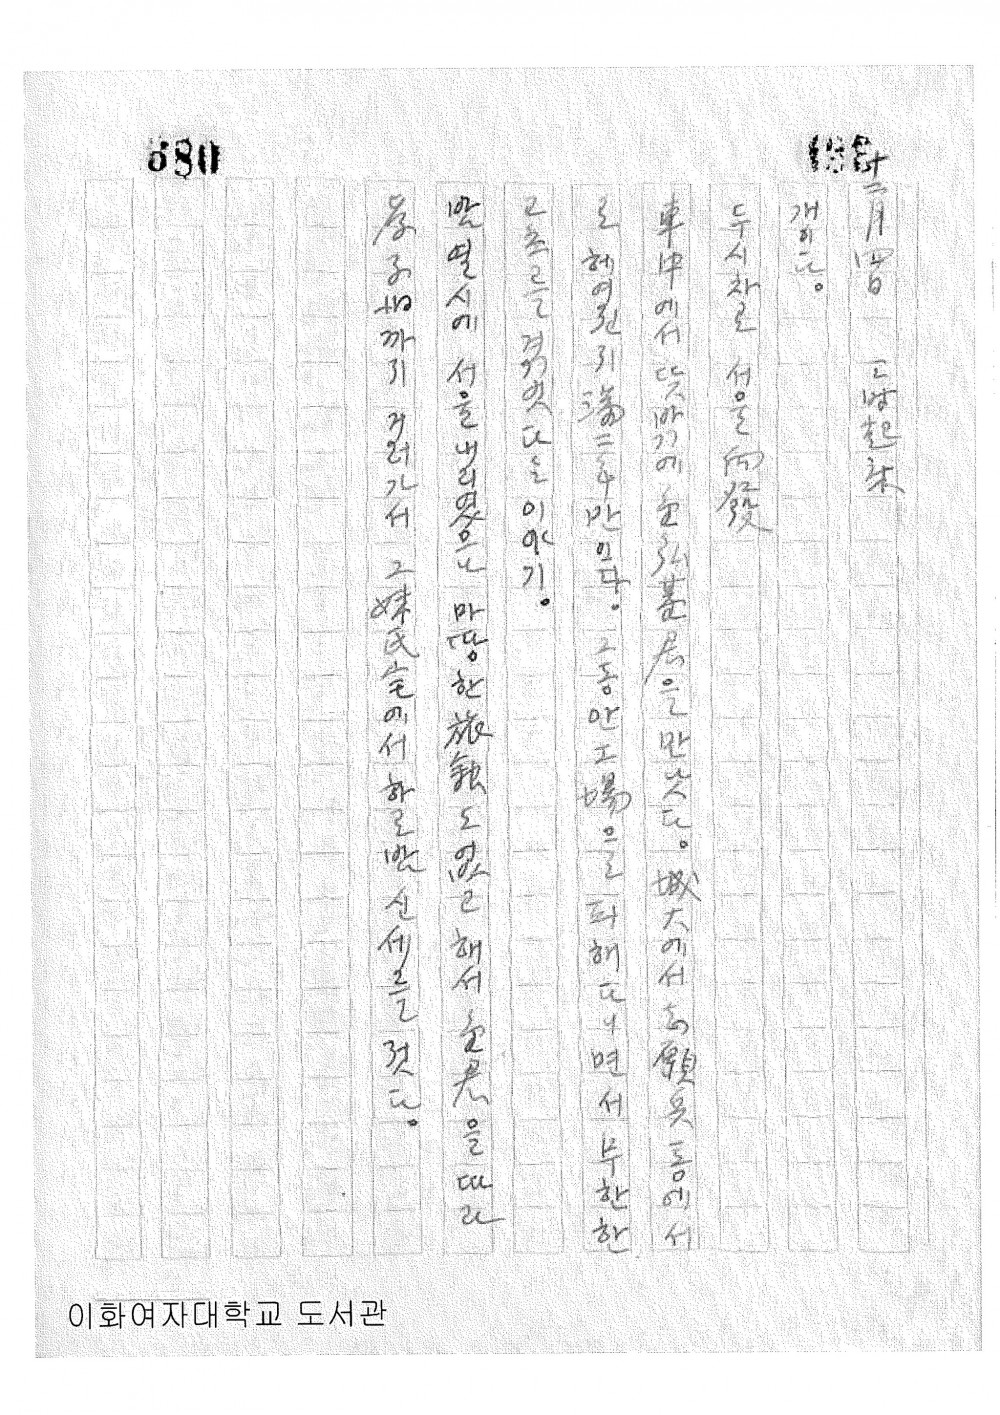 580
十二月四日 二時起床
개이다。
두시차로 서울 向發
車中에서 뜻밖기에 金弘基君을 만낫다。城大에서 志願兵 통에서
로 헤여진 지 滿二年만이다。그동안 工場을 피해 다니면서 무한한
고초를 겪엇다는 이야기。
밤 열시에 서울 내리엿으나 마땅한 旅館도 없고 해서 金君을 따라
孝子町까지 거러가서 그 妹氏宅에서 하로밤 신세를 젓다。
이화여자대학교 도서관